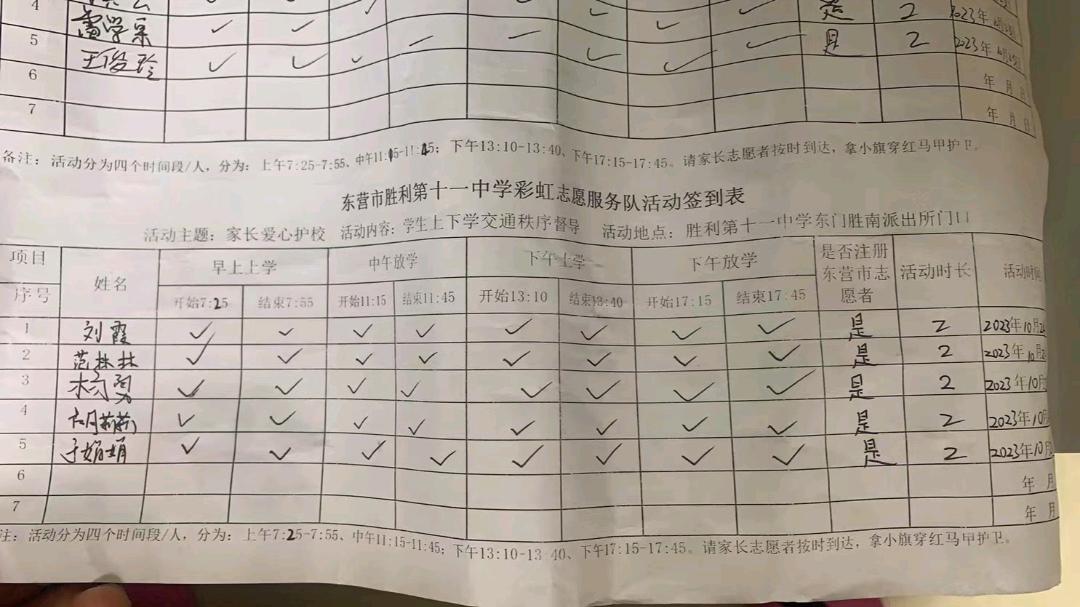 4 是 2 2023年
5 雷学采 是 2 2023年
6 王俊玲 年 月 日
7 年 月 日
备注：活动分为四个时间段/人，分为：上午7:25-7:55、中午11:15-11:45；下午13:10-13:40、下午17:15-17:45。请家长志愿者按时到达，拿小旗穿红马甲护卫。
东营市胜利第十一中学彩虹志愿服务队活动签到表
活动主题：家长爱心护校 活动内容：学生上下学交通秩序督导 活动地点：胜利第十一中学东门胜南派出所门口
项目 姓名 早上上学 中午放学 下午上学 下午放学 是否注册东营市志愿者 活动时长 活动时间
序号 开始7:25 结束7:55 开始11:15 结束11:45 开始13:10 结束13:40 开始17:15 结束17:45
1 刘霞 ✓ ✓ ✓ ✓ ✓ ✓ ✓ ✓ 是 2 2023年10月
2 范林林 ✓ ✓ ✓ ✓ ✓ ✓ ✓ ✓ 是 2 2023年10月
3 杨勇 ✓ ✓ ✓ ✓ ✓ ✓ ✓ ✓ 是 2 2023年10月
4 胡莉莉 ✓ ✓ ✓ ✓ ✓ ✓ ✓ ✓ 是 2 2023年10月
5 于娟娟 ✓ ✓ ✓ ✓ ✓ ✓ ✓ ✓ 是 2 2023年10月
6 年 月
7 年 月
注：活动分为四个时间段/人，分为：上午7:25-7:55、中午11:15-11:45；下午13:10-13:40、下午17:15-17:45。请家长志愿者按时到达，拿小旗穿红马甲护卫。